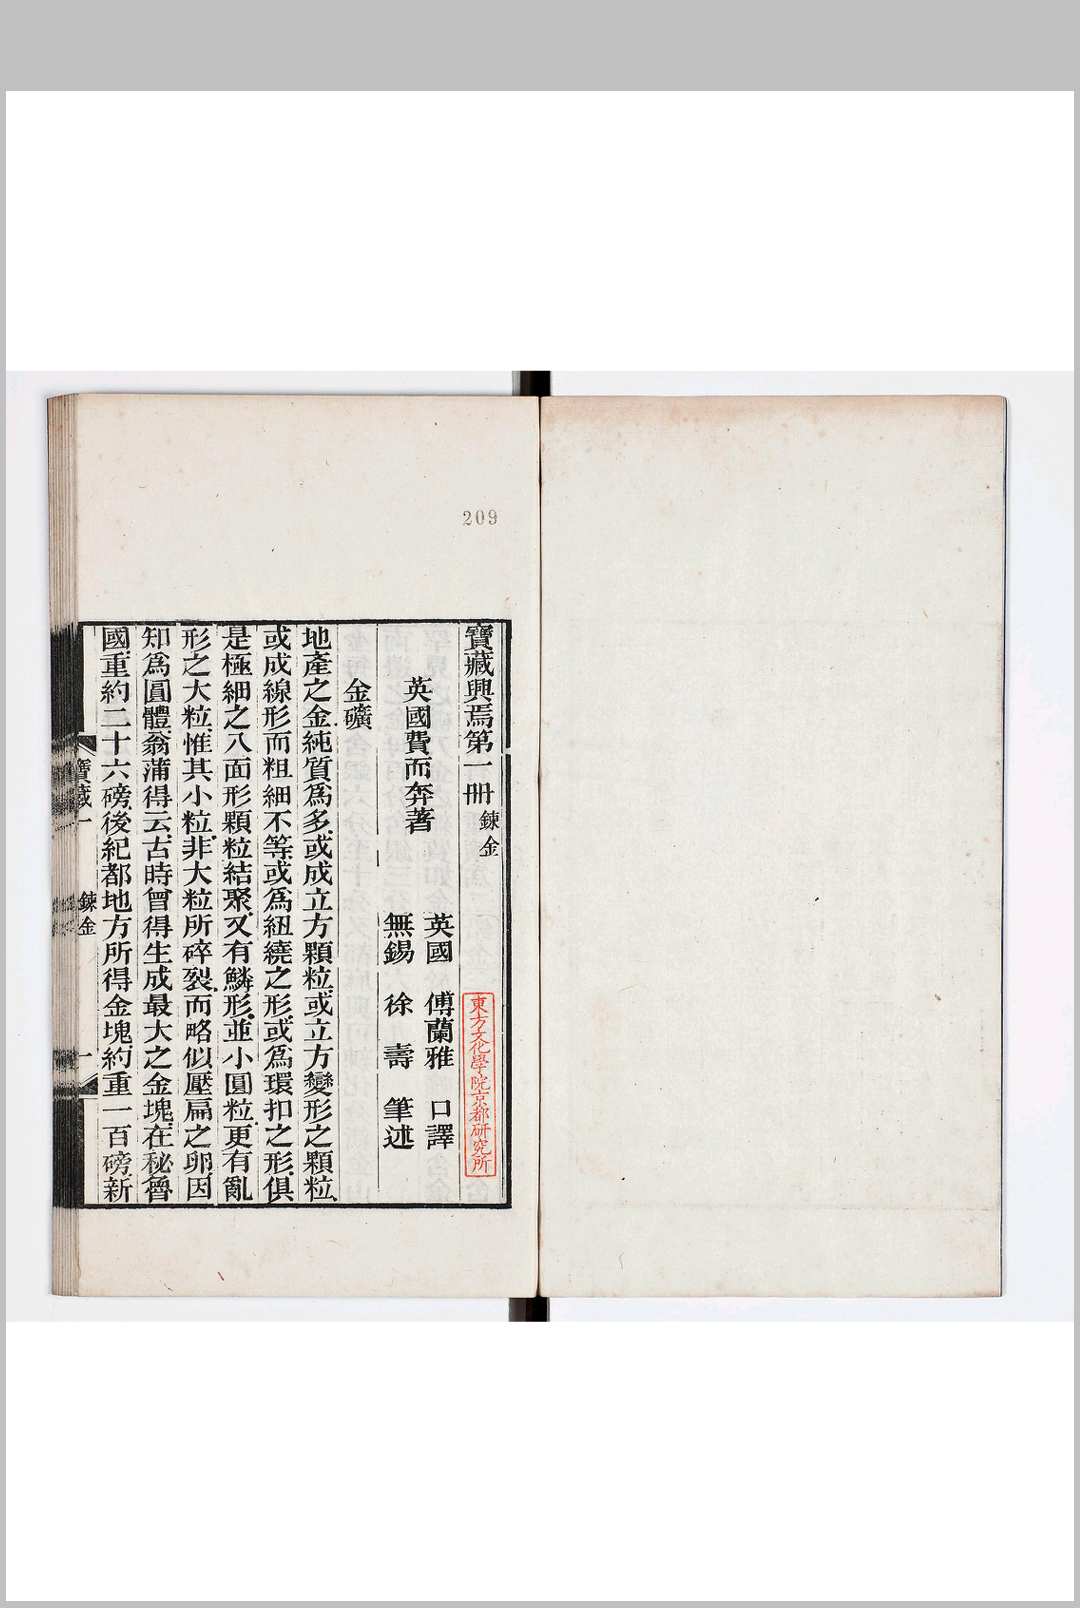 209
寶藏興焉第一冊 鍊金
英國費而奔著
英國 傅蘭雅 口譯
無錫 徐 壽 筆述
金礦
地產之金純質爲多、或成立方顆粒、或立方變形之顆粒、
或成線形而粗細不等、或爲紐繞之形、或爲環扣之形、俱
是極細之八面形顆粒結聚、又有鱗形、並小圓粒、更有亂
形之大粒、惟其小粒、非大粒所碎裂、而略似壓扁之卵、因
知爲圓體、翁蒲得云、古時曾得生成最大之金塊、在秘魯
國、重約二十六磅、後紀都地方所得金塊、約重一百磅、新
寶藏一 鍊金 一
東方文化學院京都研究所